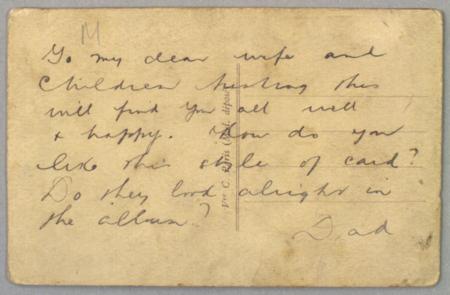 M
To my dear wife and
Children trusting this
will find you all well
& happy. How do you
like this style of card?
Do they look alright in
the album?
Dad